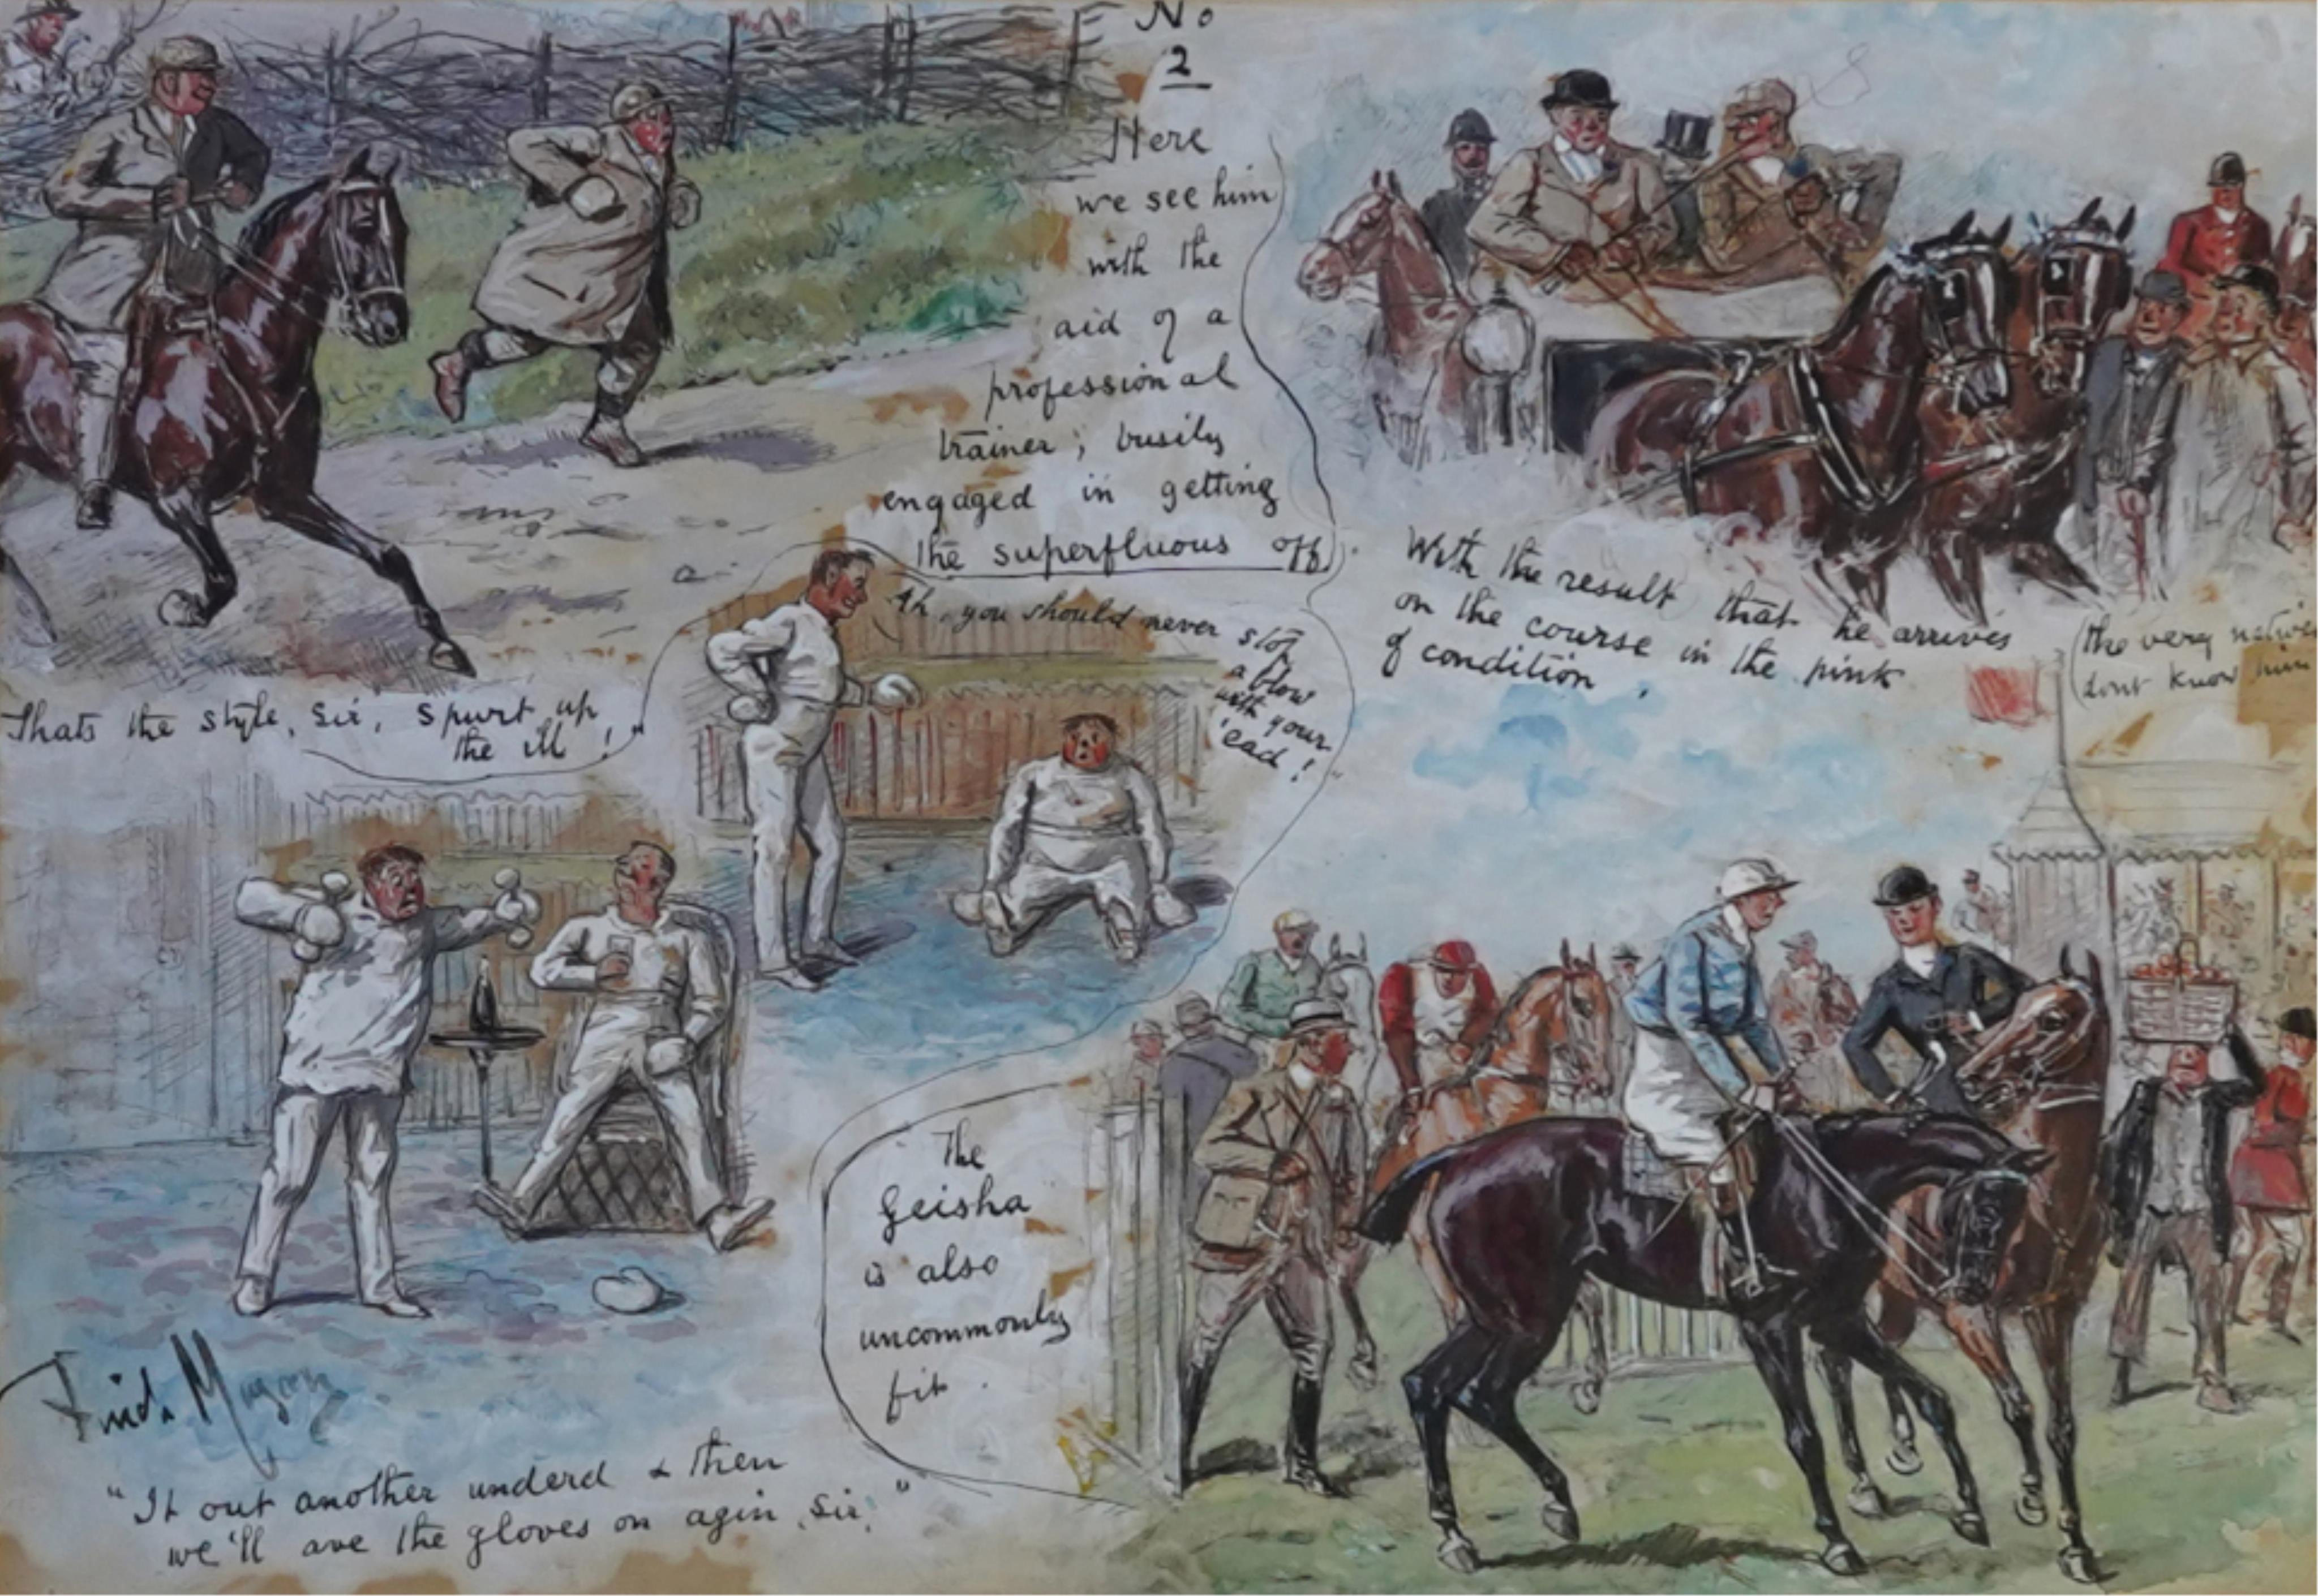 No
2
Here
we see him
with the
aid of a
professional
trainer, busily
engaged in getting
the superfluous off.
Thats the style, Sir, Spurt up
the ill!"
Ah, you should never stop
a blow
with your
'ead!"
"It out another underd & then
we'll ave the gloves on agin, Sir."
With the result that he arrives
on the course in the pink
of condition.
(the very natives
dont know him
The
Geisha
is also
uncommonly
fit.